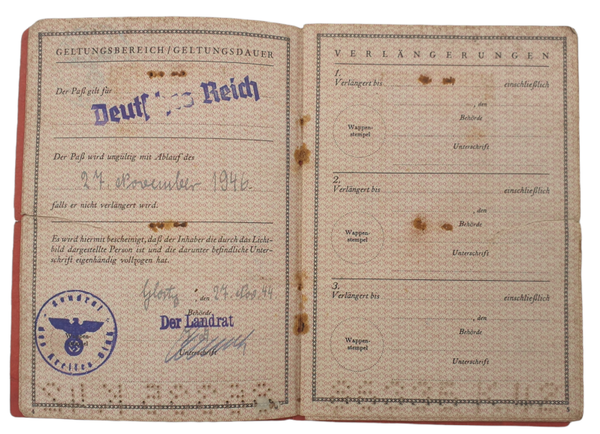 GELTUNGSBEREICH/GELTUNGSDAUER
Der Paß gilt für
Deutsches Reich
Der Paß wird ungültig mit Ablauf des
27. November 1946.
falls er nicht verlängert wird.
Es wird hiermit bescheinigt, daß der Inhaber die durch das Licht-
bild dargestellte Person ist und die darunter befindliche Unter-
schrift eigenhändig vollzogen hat.
, den 27. Nov. 44
Behörde
Der Landrat
Unterschrift
Landrat
des Kreises
VERLÄNGERUNGEN
1.
Verlängert bis einschließlich
, den
Behörde
Wappen-
stempel
Unterschrift
2.
Verlängert bis einschließlich
, den
Behörde
Wappen-
stempel
Unterschrift
3.
Verlängert bis einschließlich
, den
Behörde
Wappen-
stempel
Unterschrift